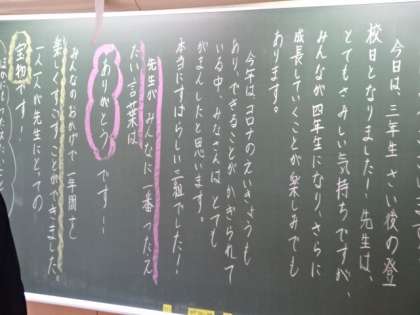 今日は、三年生 さい後の登
校日となりました！先生は、
とてもさみしい気持ちですが、
みんなが四年生になり、さらに
成長していくことが楽しみでも
あります。
今年はコロナのえいきょうも
あり、できることがかぎられて
いる中、みなさんは とても
がまんしたと思います。
本当にすばらしい三組でした！
先生が みんなに一番つたえ
たい言葉は
ありがとう です！
みんなのおかげで 一年間を
楽しくすごすことができました。
一人一人が先生にとっての
宝物です！